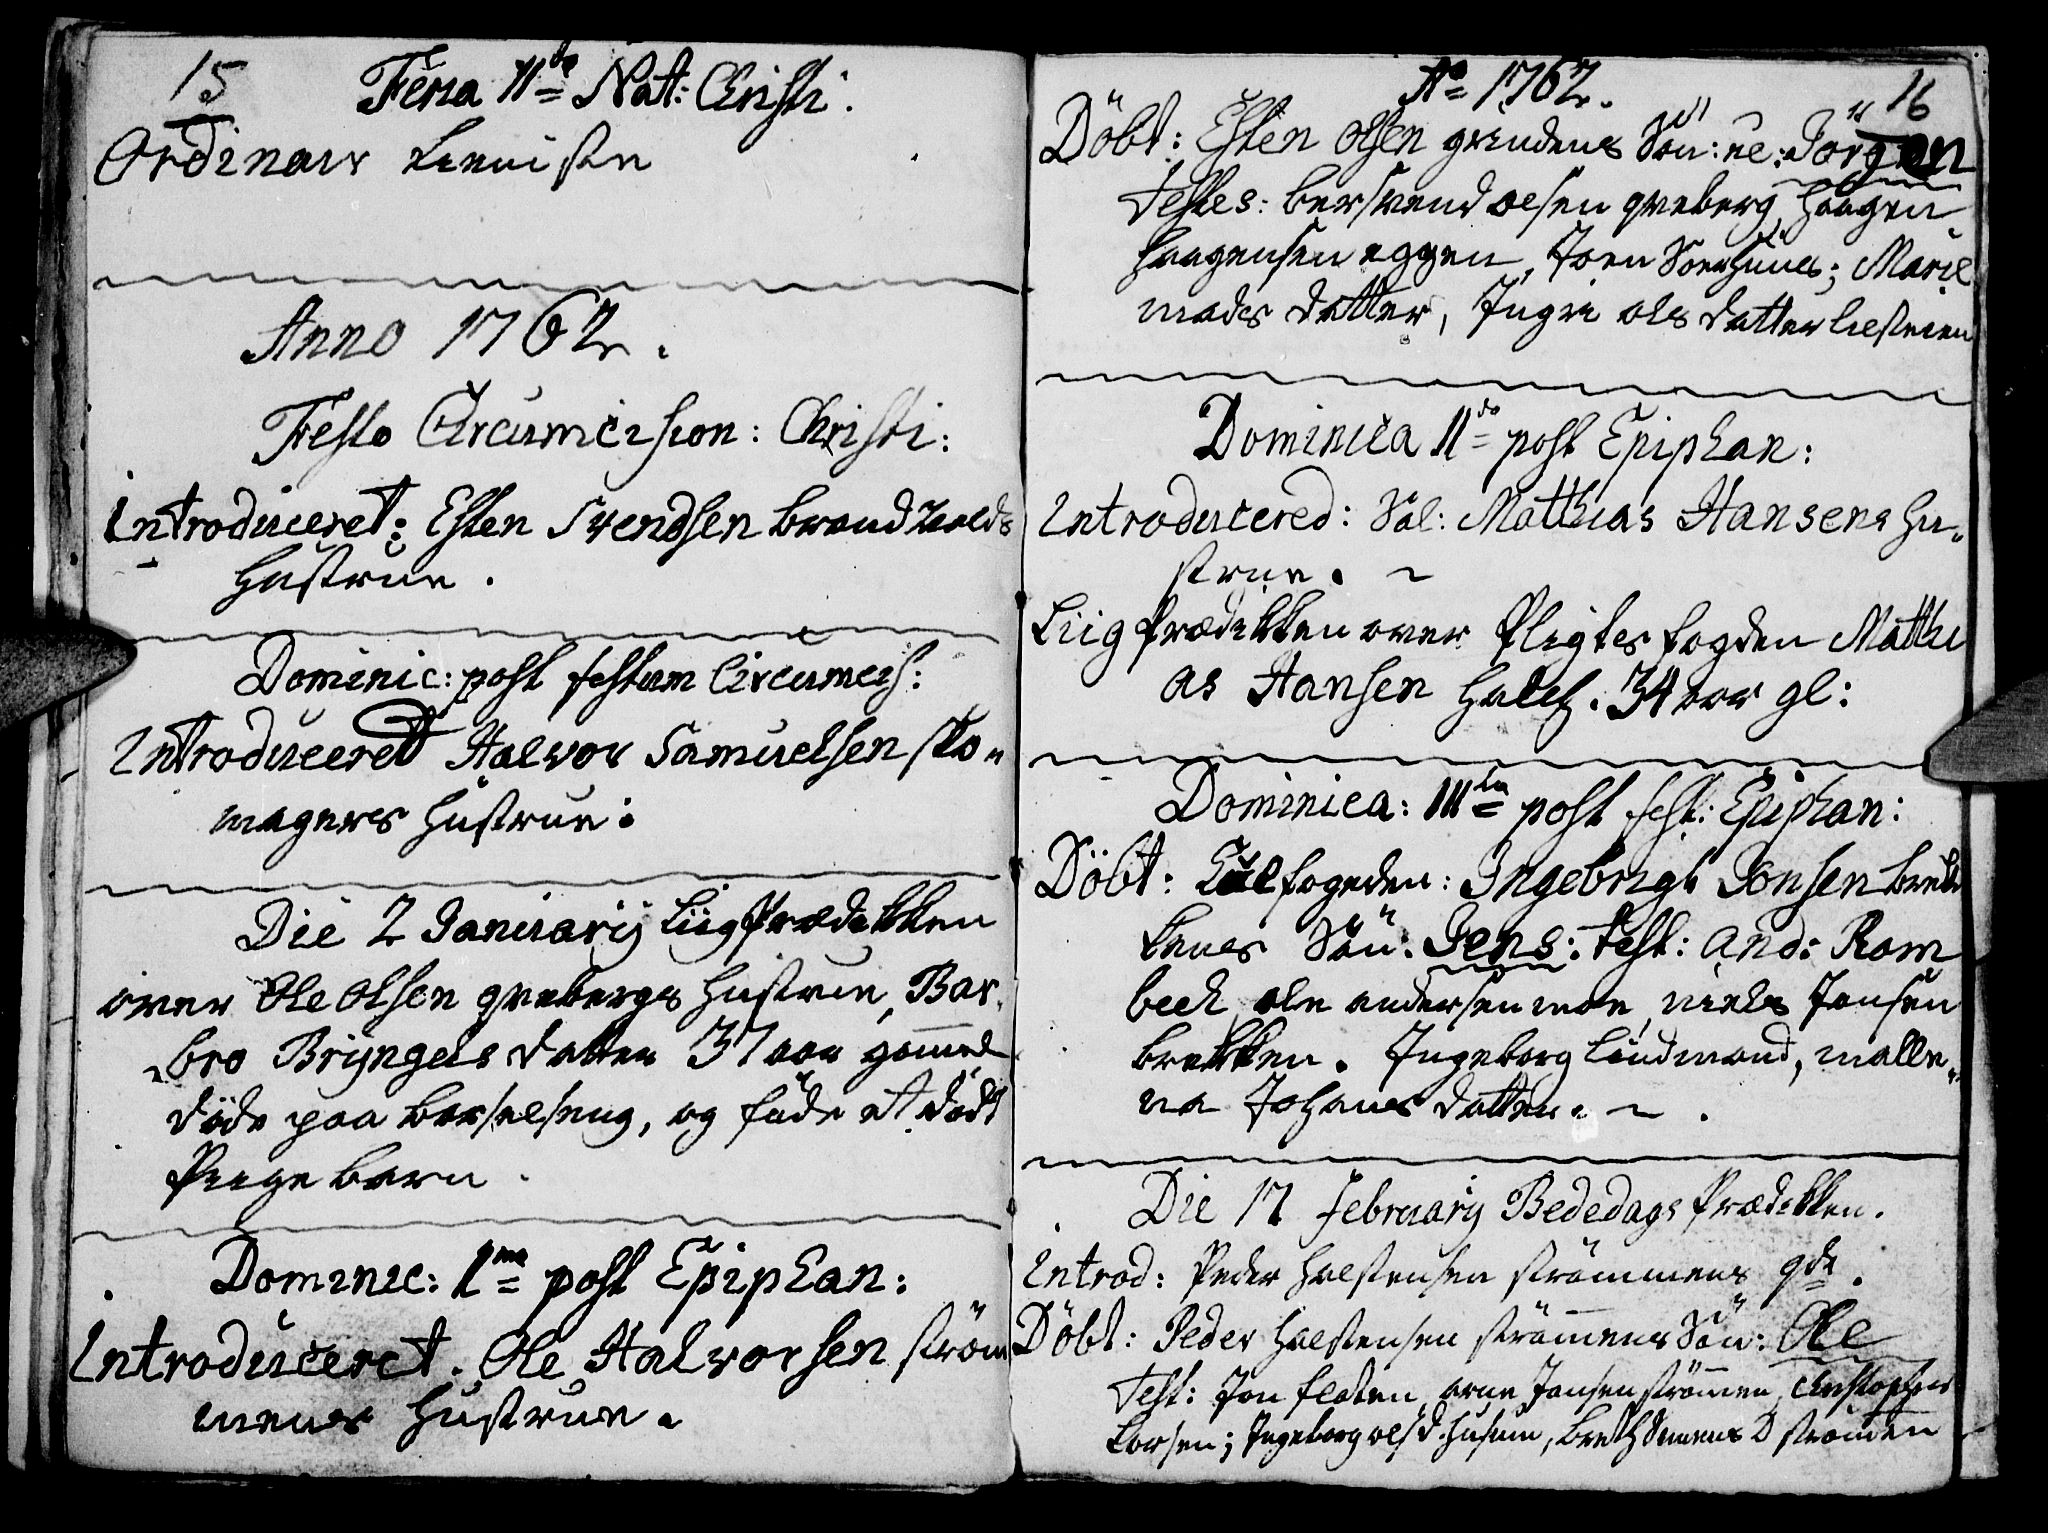 15
Feria II da Nat: Christi.
Ordinair tieniste
Anno 1762.
Festo Circumcision: Christi:
Introduceret: Esten Svendsen brandvolds
Hustrue.
Dominic: post festum Circumcis:
Introduceret Halvor Samuelsen sko„
magers Hustrue:
Die 2 Januarij Liigprædikken
over Ole Olsen greebergs Hustrue, Bar„
„bro Bryngels datter 37 aar gammel
døde paa barselseng, og føde et dødt
Pigebarn.
Dominic: I ma post Epiphan:
Introduceret. Ole Halvorsen ström
mens Hustrue.
Ao 1762.
16
Döbt: Esten Olsen grindens Sön: ne: Jörgen
Testes: bersvend olsen greberg, Haagen
Haagensen eggen, Joen Sörhuus; Marie
mads datter, Ingri ols datter
Dominica II da post Epiphan:
Introducered: Sal: Matthias Hansens Hu„
strue.
Liigprædikken over Pligtsfogden Matthi
as Hansen Halch. 34 aar gl:
Dominica: III tia post fest: Epiphan:
Döbt: fogeden: Ingebrigt Jonsen brek
kens Sön: Jens: test: And: Rom
beck ole andersen moe, niels Jonsen
brekken. Ingeborg Lindmand, malle„
na Johans datter.
Die 17 February Bededags Prædikken.
Introd: Peder Halstensen strömmens qde.
Döbt: Peder Halstensen strömmens Sön: Ole
Test: Jon floten, arne Jonsen strömmen, Christopher
Larsen; Ingeborg ols d. Husum, D strömmen